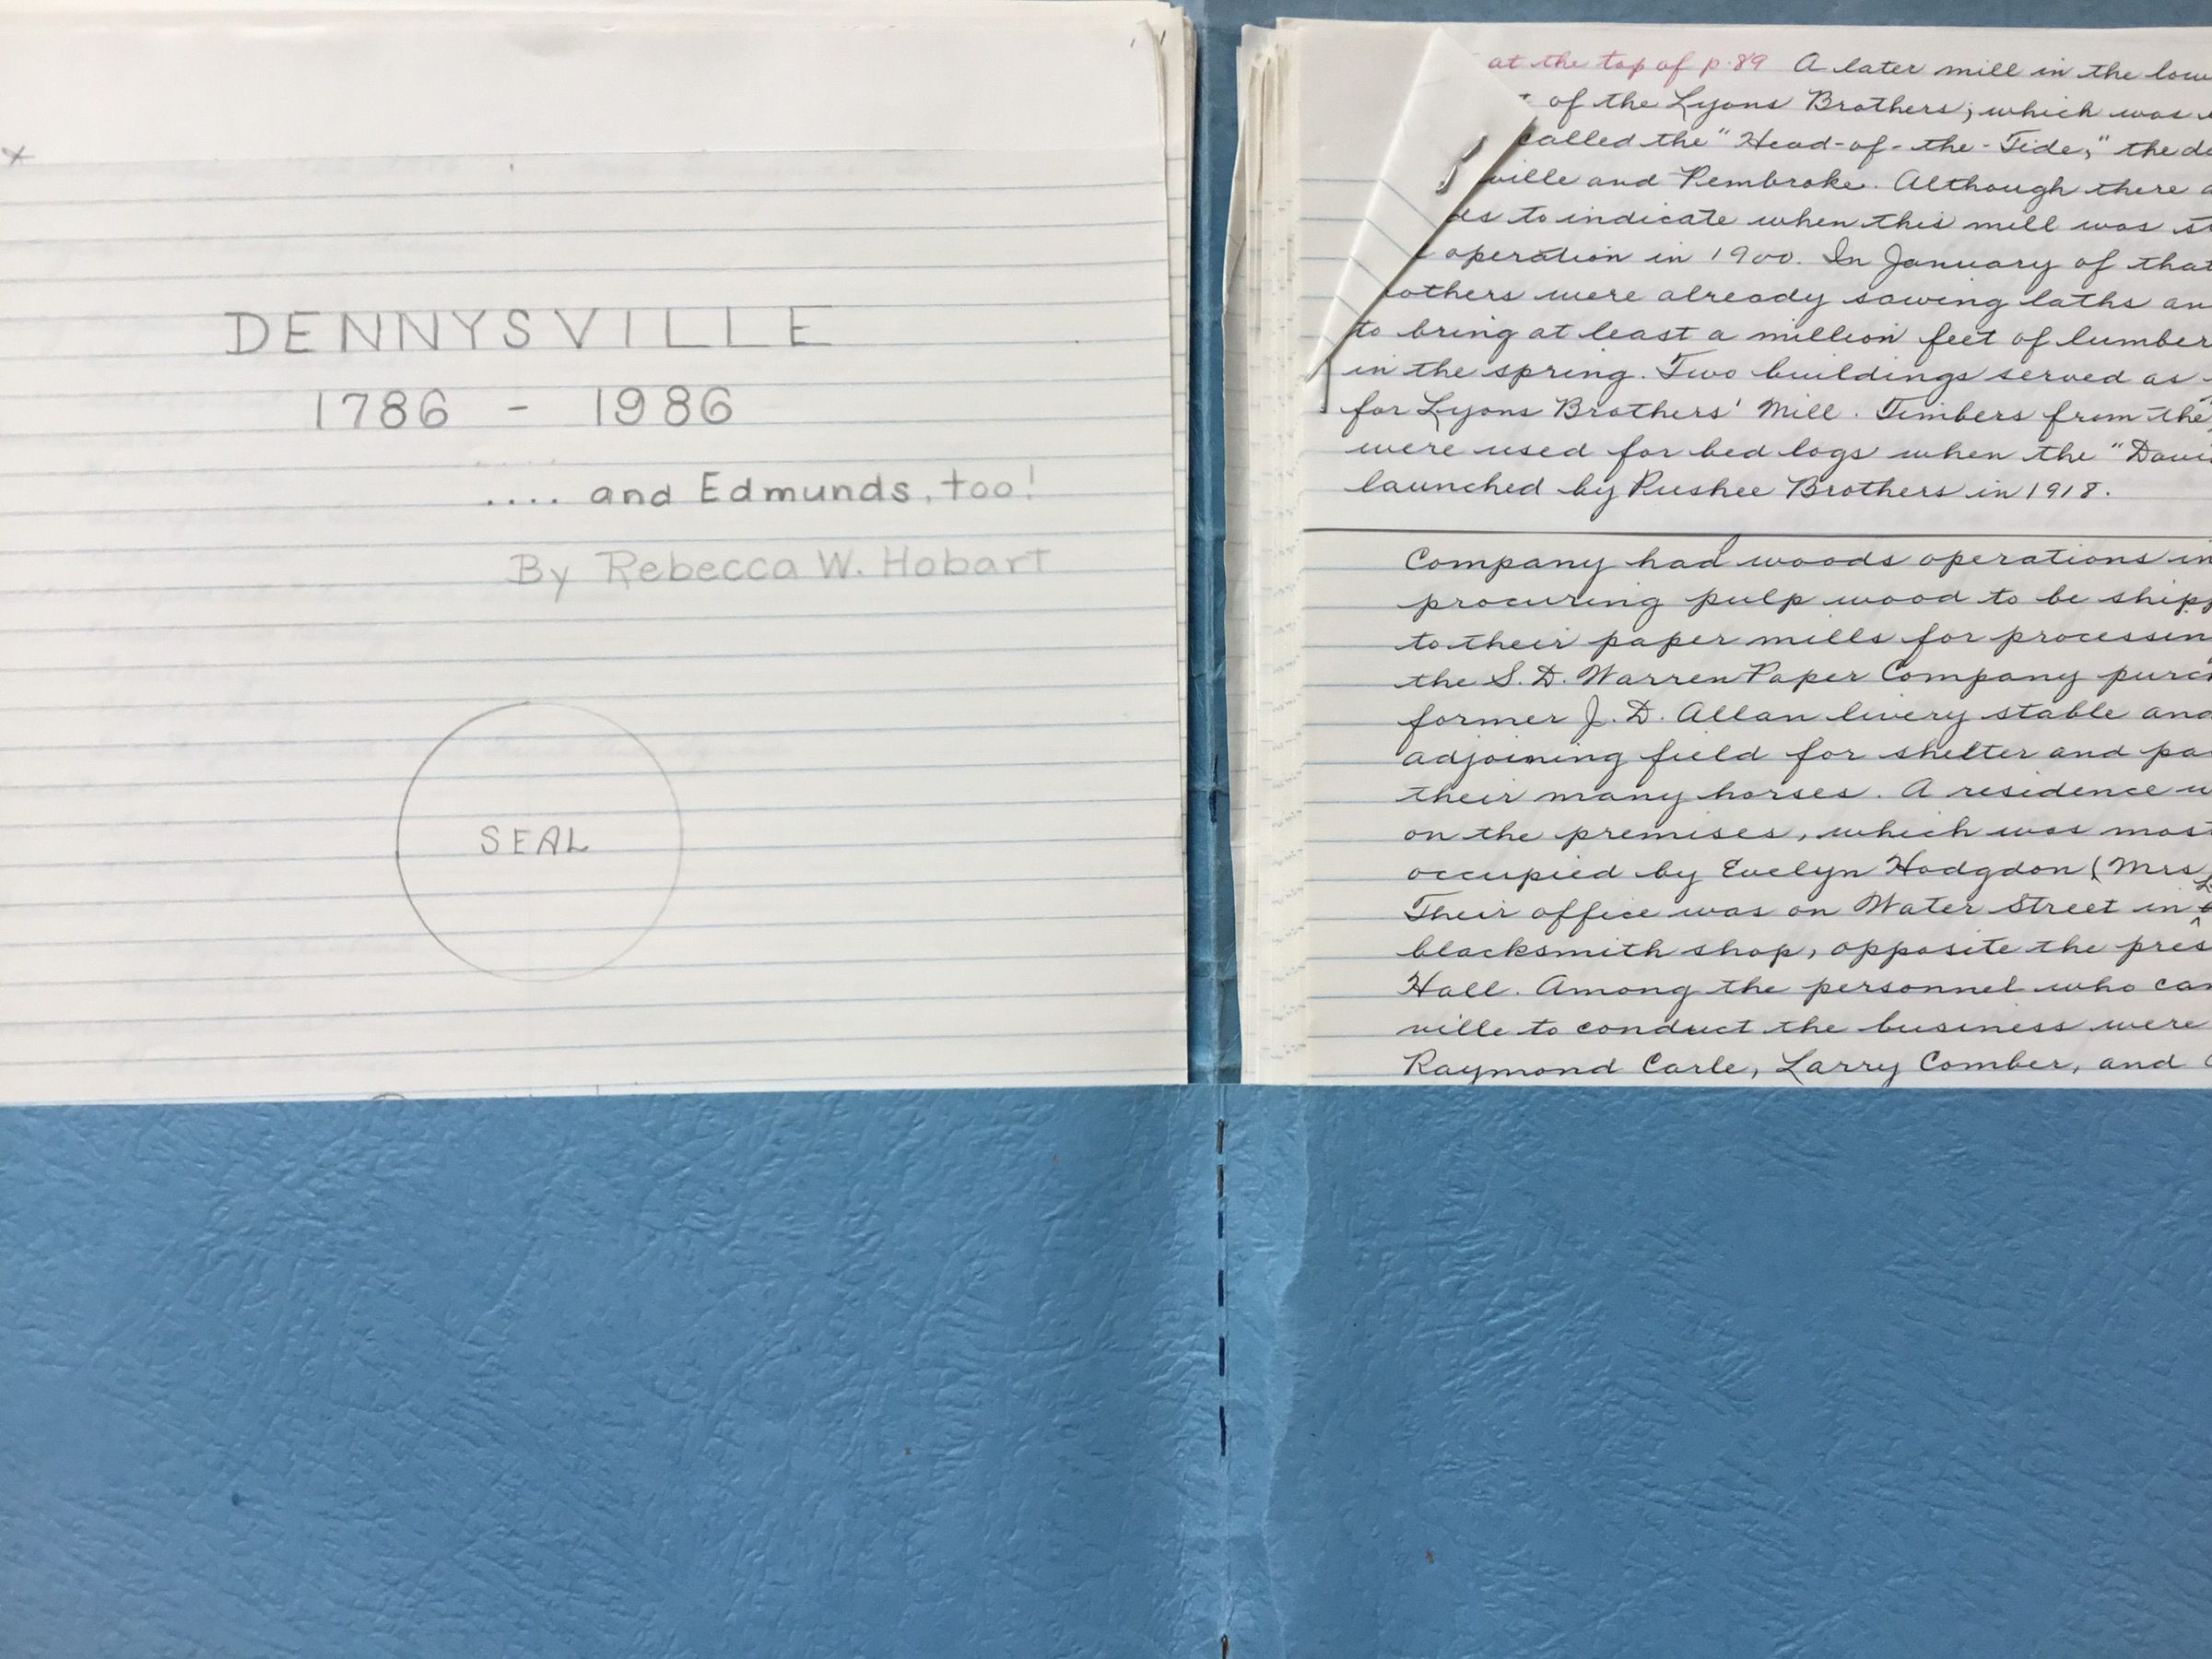 DENNYSVILLE
1786 - 1986
.... and Edmunds, too!
By Rebecca W. Hobart
SEAL
at the top of p. 89 A later mill in the
of the Lyons Brothers; which was
called the "Head-of-the-Tide," the
ville and Pembroke. Although there
to indicate when this mill was
operation in 1900. In January of that
others were already sawing laths
to bring at least a million feet of lumber
in the spring. Two buildings served as
for Lyons Brothers' Mill. Timbers from the
were used for bed logs when the "
launched by Rushee Brothers in 1918.
Company had woods operations in
procuring pulp wood to be
to their paper mills for
the S. D. Warren Paper Company
former J. D. Allan livery stable and
adjoining field for shelter and
their many horses. A residence
on the premises, which was
occupied by Evelyn Hodgdon (Mrs.
Their office was on Water Street in
blacksmith shop, opposite the
Hall. Among the personnel who
ville to conduct the business were
Raymond Carle, Larry Comber, and